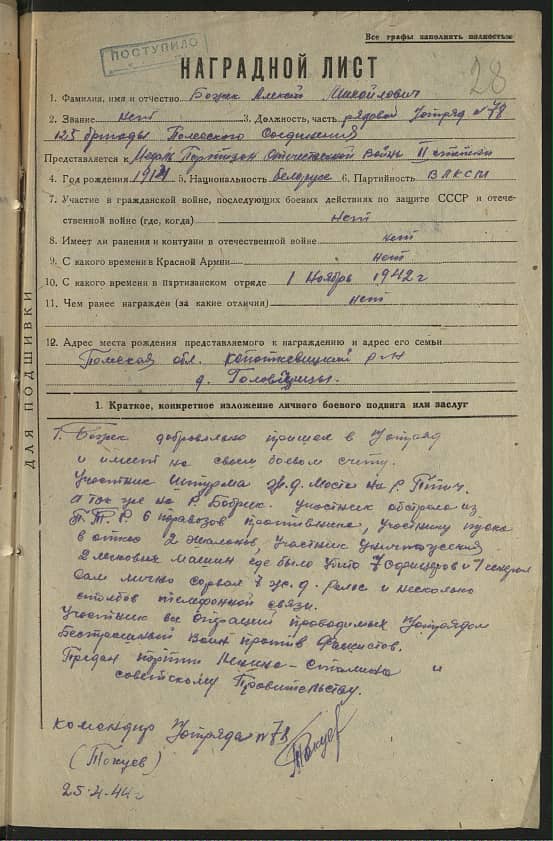 Все графы заполнять полностью
ПОСТУПИЛО
28
НАГРАДНОЙ ЛИСТ
1. Фамилия, имя и отчество Михайлович
2. Звание нет 3. Должность, часть рядовой №78
125 бригады Полесского Соединения
Представляется к Медали Партизан Отечественной Войны II степени
4. Год рождения 5. Национальность белорусс 6. Партийность ВЛКСМ
7. Участие в гражданской войне, последующих боевых действиях по защите СССР и отече-
ственной войне (где, когда) нет
8. Имеет ли ранения и контузии в отечественной войне нет
9. С какого времени в Красной Армии нет
10. С какого времени в партизанском отряде 1 Ноябрь 1942 г
11. Чем ранее награжден (за какие отличия) нет
12. Адрес места рождения представляемого к награждению и адрес его семьи
обл. р-н
д.
ДЛЯ ПОДШИВКИ
1. Краткое, конкретное изложение личного боевого подвига или заслуг
Т. добровольно пришел в
и имеет на своем боевом счету.
Участник Штурма жр. д. Моста на р. Птич.
а так же на р. Бобрик. участник обстрела из
П.Т.Р 6 паравозов противника, участник пуска
в откос 2 эшалонов, участник
2 легковых машин где было убито 7 офицеров и 1 генерал
сам лично сорвал 7 ж.д. рельс и несколько
столбов телефонной связи.
Участник все операций проводимых
Бесстрашный Воин против Фашистов.
Предан партии Ленина-Сталина и
советскому Правительству.
командир №78
(Токуев)
25.4.44 г